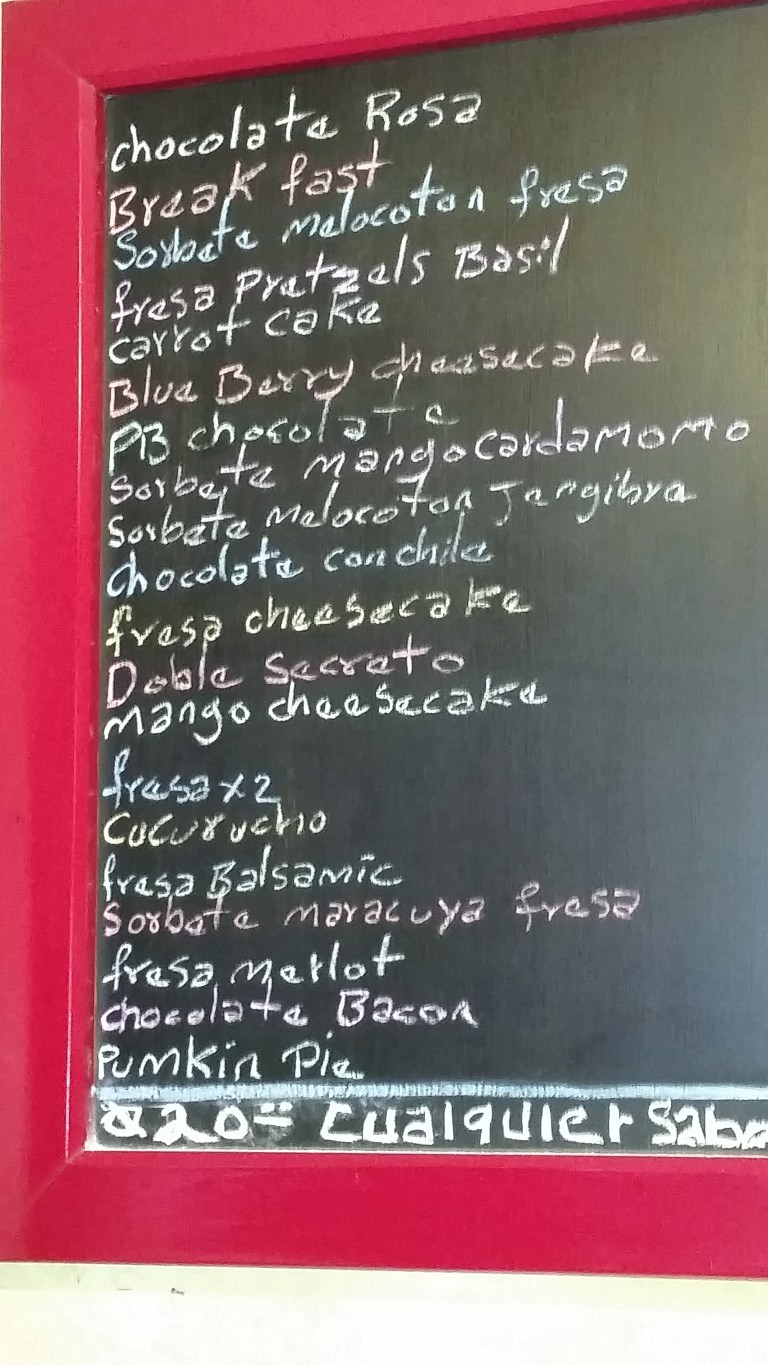 chocolate Rosa
Break fast
Sorbete melocoton fresa
fresa Pretzels Basil
carrot cake
Blue Berry cheesecake
PB chocolate
Sorbete mango cardamomo
Sorbete melocoton Jengibre
chocolate con chile
fresa cheesecake
Doble Secreto
mango cheesecake
fresa x 2
Cucurucho
fresa Balsamic
Sorbete maracuya fresa
fresa merlot
chocolate Bacon
Pumkin Pie
Q20= Cualquier Sabo